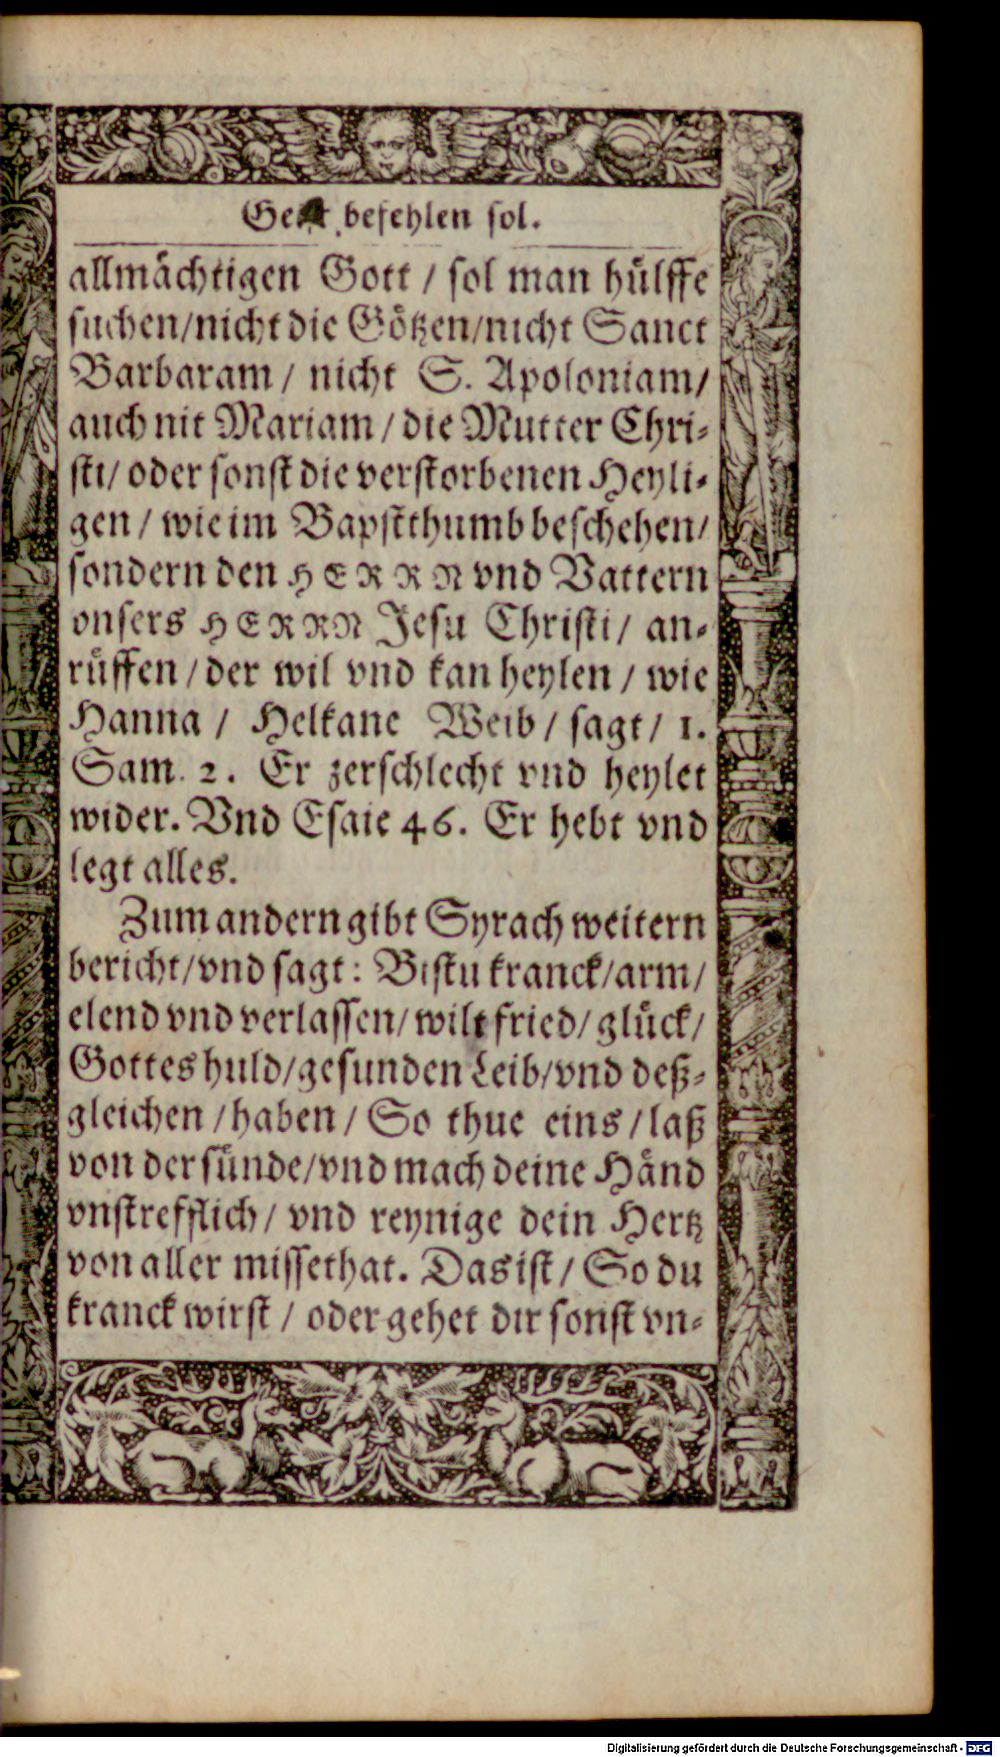 befehlen sol.
allmächtigen Gott / sol man hülffe
suchen/nicht die Götzen/nicht Sanct
Barbaram / nicht S. Apoloniam/
auch nit Mariam / die Mutter Chri-
sti/ oder sonst die verstorbenen Heyli-
gen / wie im Bapstthumb beschehen/
sondern den HERRN vnd Vattern
vnsers HERRN Jesu Christi/ an-
rüffen / der wil vnd kan heylen / wie
Hanna / Helkane Weib / sagt / 1.
Sam. 2. Er zerschlecht vnd heylet
wider. Vnd Esaie 46. Er hebt vnd
legt alles.
Zum andern gibt Syrach weitern
bericht/vnd sagt: Bistu kranck/arm/
elend vnd verlassen/ wilt fried/ glück/
Gottes huld/gesunden Leib/vnd deß-
gleichen / haben / So thue eins / laß
von der sünde/vnd mach deine Händ
vnstrefflich / vnd reynige dein Hertz
von aller missethat. Das ist / So du
kranck wirst / oder gehet dir sonst vn-
Digitalisierung gefördert durch die Deutsche Forschungsgemeinschaft - DFG